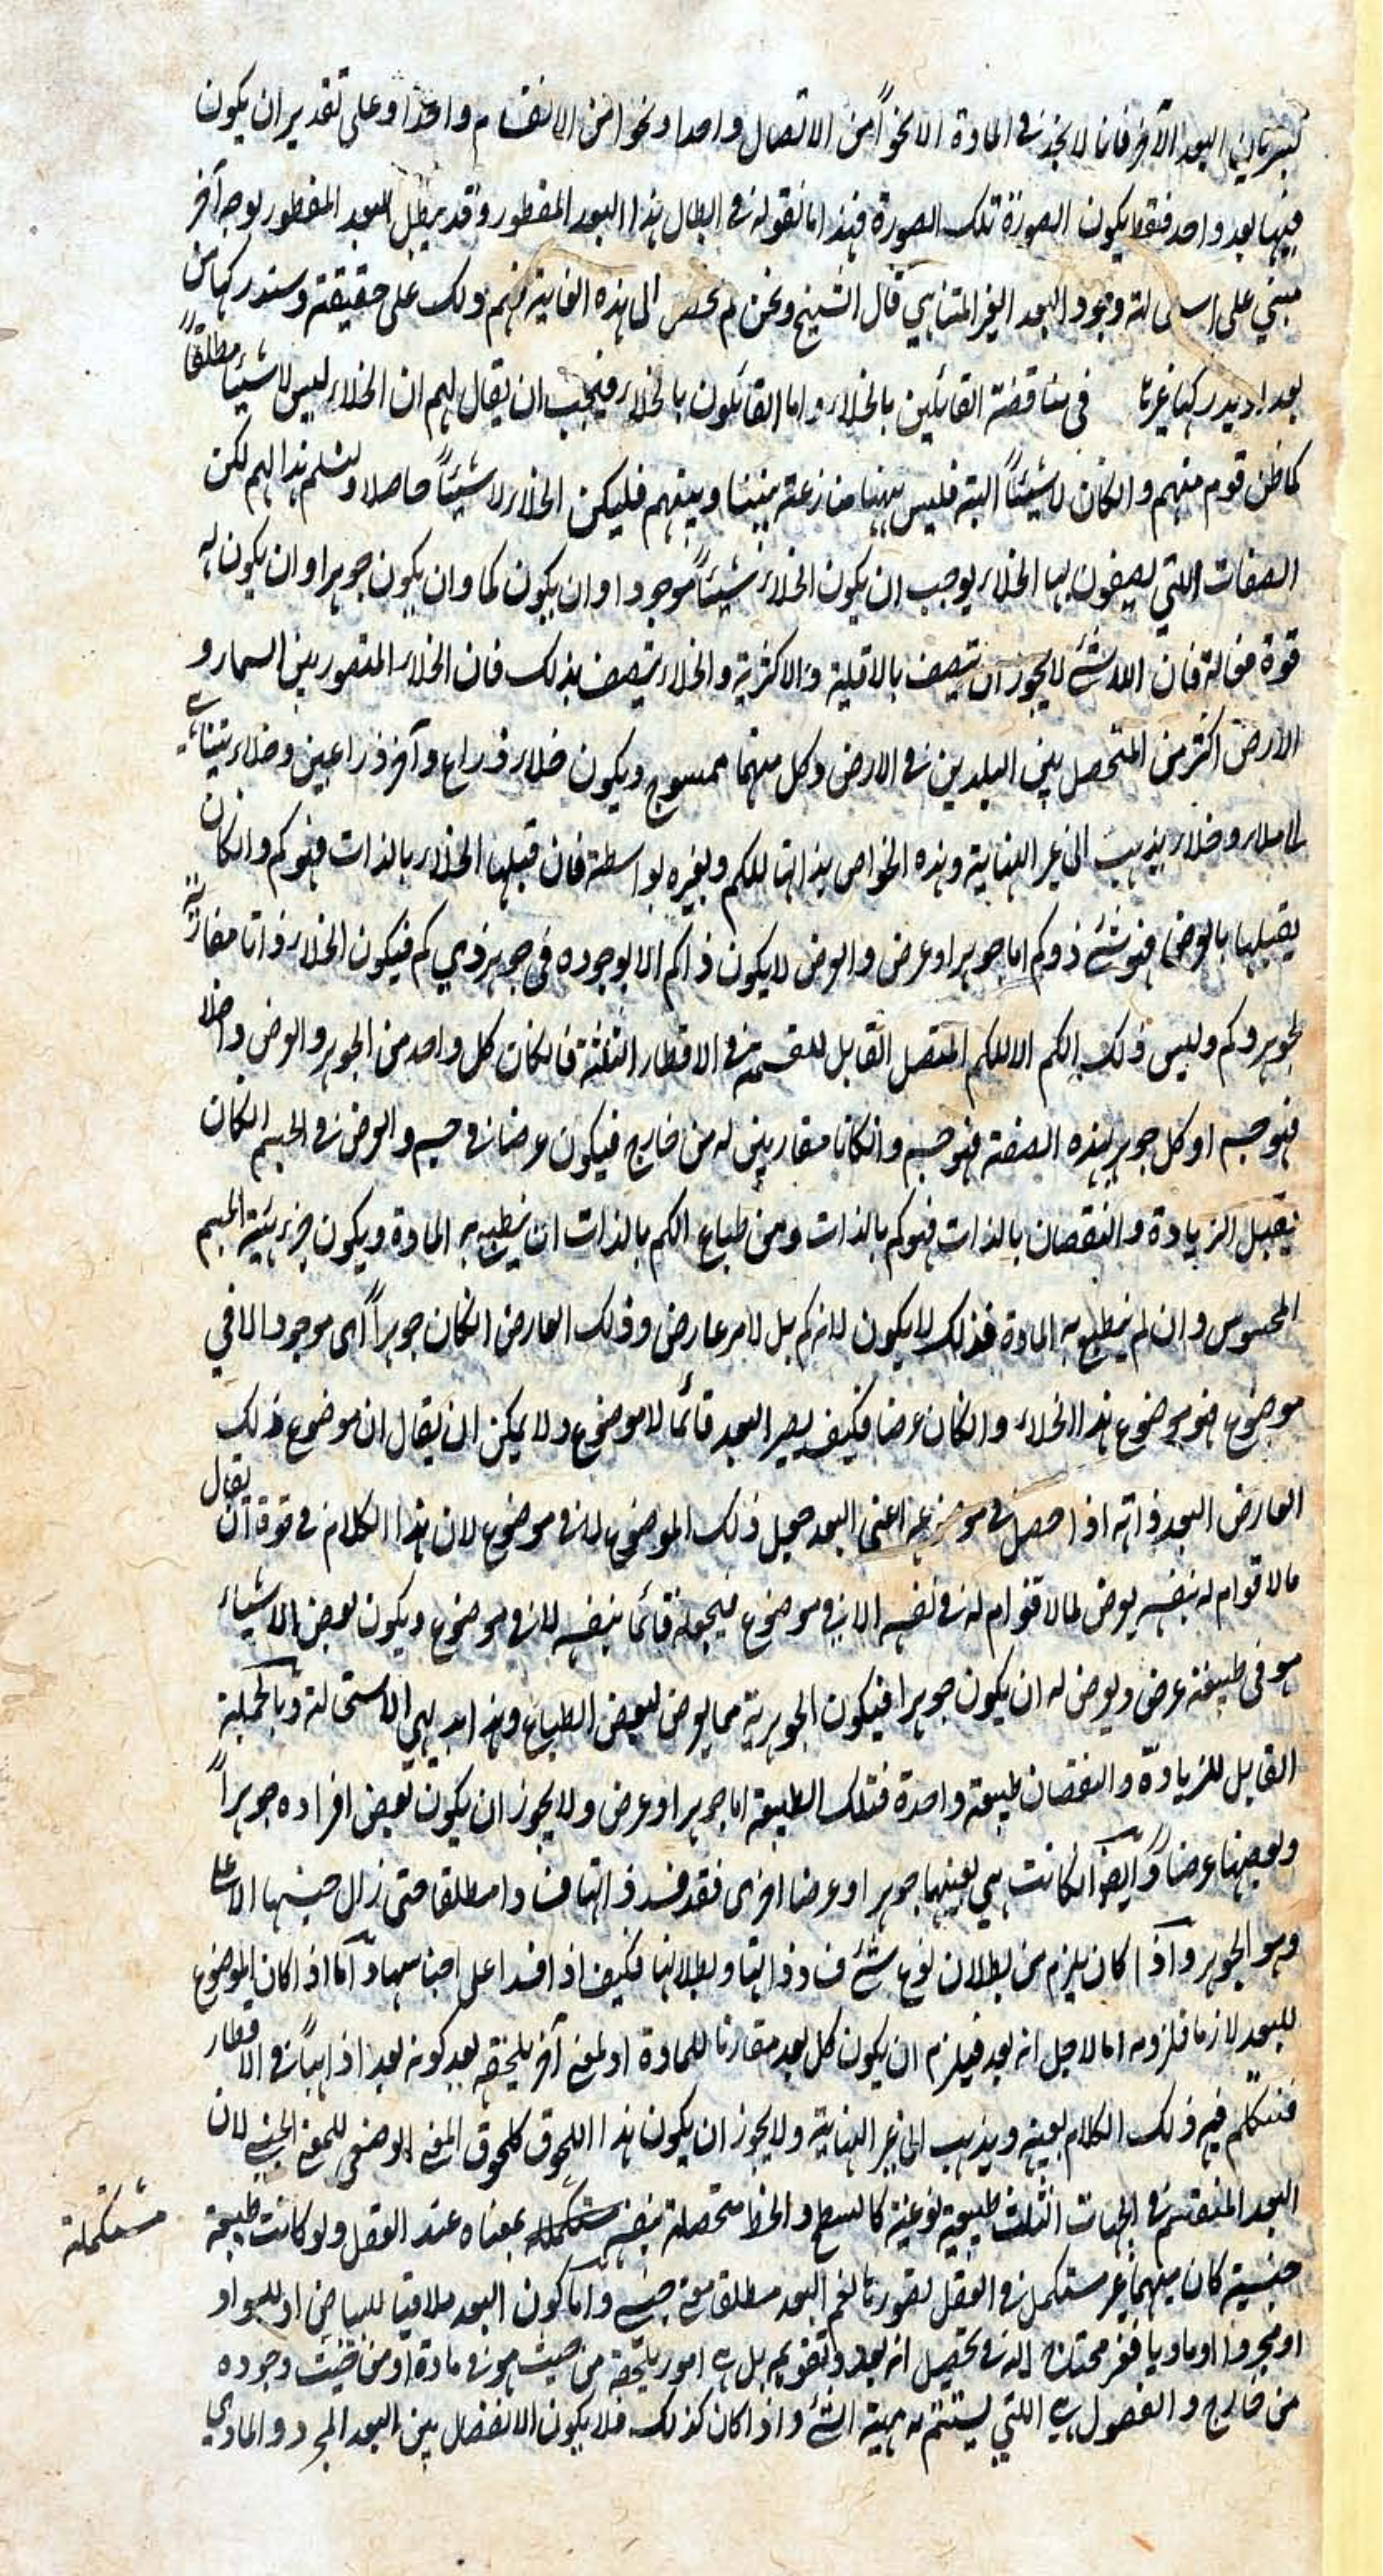 البعد الآخر فانا لا نجد في المادة الا نحواً من الاتصال واحدا ونحوا من الانقسام واحدا وعلى تقدير ان يكون
فيها بعد واحد فقط يكون الصورة تلك الصورة فهذا ما نقوله في ابطال هذا البعد المفطور وقد يبطل البعد المفطور بوجه آخر
مبني على استحالة وجود البعد الغير المتناهي قال الشيخ ونحن لم الى هذه الغاية فهم ذلك على حقيقته وسندركها من
بعد او يدركها غيرنا في مناقضة القائلين بالخلاء واما القائلون بالخلاء فيجب ان يقال لهم ان الخلاء ليس لا شيئا مطلقاً
كما ظن قوم منهم وان كان لا شيئاً البتة فليس ههنا منازعة بيننا وبينهم فليكن الخلاء لا شيئاً حاصلا ولنسلم هذا لهم لكن
الصفات اللتي يصفون بها الخلاء يوجب ان يكون الخلاء شيئاً موجودا وان يكون كما وان يكون جوهرا وان يكون له
قوة فعالة فان اللاشئ لا يجوز ان يتصف بالاقلية والاكثرية والخلاء يتصف بذلك فان الخلاء المتصور بين السماء و
الارض اكثر من المتحصل بين البلدين في الارض وكل منهما ممسوح ويكون خلاء ذراع وآخر ذراعين وخلاء يتناهى
الى ملاء وخلاء يذهب الى غير النهاية وهذه الخواص بذاتها للكم ولغيره بواسطة فان قبلها الخلاء بالذات فهو كم وان كان
يقبلها بالعرض فهو شئ ذو كم اما جوهر او عرض والعرض لا يكون ذا كم الا لوجوده في جوهر ذي كم فيكون الخلاء ذاتا مقارنة
لجوهر وكم وليس ذلك الكم الا للكم المتصل القابل للقسمة في الاقطار الثلثة فان كان كل واحد من الجوهر والعرض داخلا
فهو جسم او كل جوهر بهذه الصفة فهو جسم وان كانا مقارنين له من خارج فيكون عرضا في جسم والعرض في الجسم ان كان
يقبل الزيادة والنقصان بالذات فهو كم بالذات ومن طباع الكم بالذات ان ينطبع به المادة ويكون جزء هيئة الجسم
المحسوس وان لم ينطبع به المادة فذلك لا يكون لانه كم بل لامر عارض وذلك العارض ان كان جوهراً اي موجودا لا في
موضوع فهو موضوع هذا الخلاء وان كان عرضا فكيف يصير البعد قائما لا موضوع ولا يمكن ان يقال ان موضوع ذلك
العارض البعد ذاته اذا حصل في موضوعه اعني البعد جعل ذلك الموضوع لا في موضوع لان هذا الكلام في قوة ان يقال
ما لا قوام له بنفسه يعرض لما لا قوام له في نفسه الا في موضوع فيجعله قائما بنفسه لا في موضوع ويكون بعض الاشياء
هو في طبيعته عرض ويعرض له ان يكون جوهرا فيكون الجوهرية مما يعرض لبعض الطبايع وهذا بديهي الاستحالة وبالجملة
القابل للزيادة والنقصان طبيعة واحدة فتلك الطبيعة اما جوهر او عرض ولا يجوز ان يكون بعض افراده جوهراً
وبعضها عرضا وايضا ان كانت هي بعينها جوهر او عرضا اخرى فقد فسد ذاتها فسادا مطلقا حتى زال جنسها الاعلى
وهو الجوهر واذا كان يلزم من بطلان نوع شئ فساد ذاتها وبطلانها فكيف اذا فسد اعلى اجناسها واما اذا كان الموضوع
للبعد لازما فلزومه اما لاجل انه بعد فيلزم ان يكون كل بعد مقارنا للمادة او لمعنى آخر يلحقه بعد كونه بعدا ذاهباً في الاقطار
فنتكلم فيه ذلك الكلام بعينه ويذهب الى غير النهاية ولا يجوز ان يكون هذا اللحوق كلحوق المعنى الفصلي للمعنى الجنسي لان
البعد المنقسم في الجهات الثلث طبيعة نوعية كالسطح والخط متحصلة بنفسه مستكملة بمعناه عند العقل ولو كانت طبيعة
جنسية كان مبهما غير مستكمل في العقل تصوره نعم البعد مطلقا معنى جنسي واما كون البعد ملاقيا للبياض او للسواد
او مجردا او ماديا فغير محتاج اليه في تحصيل انه بعد وتقويمه بل هي امور يلحقه من حيث هو في مادة او من حيث وجوده
من خارج والفصول هي اللتي يستتم به مهية الشئ واذا كان كذلك فلا يكون الانفصال بين البعد المجرد والمادي
مستكملة